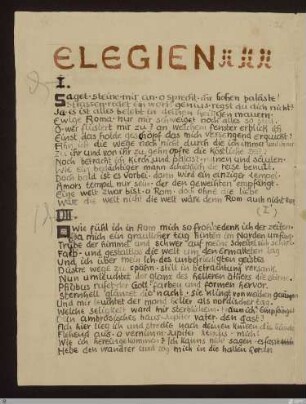 ELEGIEN
I.
Saget steine mir an o sprecht ihr hohen paläste!
Strassen redet ein wort! genius regst du dich nicht?
Ja es ist alles beseelt in deinen heiligen mauern
Ewige Roma nur mir schweiget noch alles so still.
O wer flüstert mir zu? an welchem fenster erblick ich
Einst das holde geschöpf das mich versengend erquickt?
Ahn ich die wege noch nicht durch die ich immer und immer
Zu ihr und von ihr zu gehn opfre die köstliche zeit?
Noch betracht ich kirch und palast ruinen und säulen
Wie ein bedächtiger mann schicklich die reise benutzt.
Doch bald ist es vorbei dann wird ein einziger tempel
Amors tempel nur sein der den geweihten empfängt.
Eine welt zwar bist o Rom doch ohne die liebe
Wäre die welt nicht die welt wäre denn Rom auch nicht Rom
O wie fühl ich in Rom mich so froh! gedenk ich der zeiten
Da mich ein graulicher tag hinten im Norden umfing
Trübe der himmel und schwer auf meine scheitel sich
Farb und gestaltlos die welt um den ermatteten lag
Und ich über mein ich des unbefriedigten geistes
Düstre wege zu spähn still in betrachtung versank.
Nun umleuchtet der glanz des helleren äthers die stirne
Phöbus rufet der Gott farben und formen hervor.
Sternhell glänzet die nacht sie klingt von weichen gesängen
Und mir leuchtet der mond heller als nordischer tag.
Welche seligkeit ward mir sterblichem! träum ich? Empfänget
Dein ambrosisches haus Jupiter vater den gast?
Ach hier lieg ich und strecke nach deinen knieen die hände
Flehend aus. o vernimm Jupiter Xenius mich!
Wie ich hereingekommen? Ich kanns nicht sagen es fasste
Hebe den wandrer und zog mich in die hallen heran